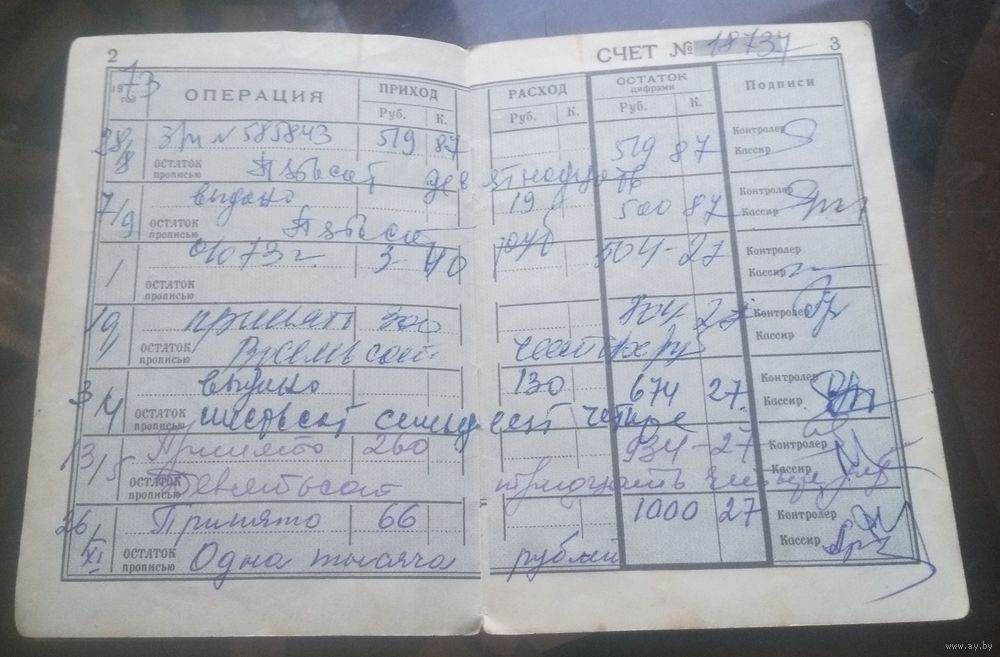 2 СЧЕТ № 18737 3
1973 год ОПЕРАЦИЯ ПРИХОД РАСХОД ОСТАТОК цифрами Подписи
Руб. К. Руб. К. Руб. К.
28/8 585843 519 87 519 87 Контролер
ОСТАТОК прописью Пятьсот девятнадцать Кассир
7/9 выдано 19 500 87 Контролер
ОСТАТОК прописью Пятьсот Кассир
1 73 г. 3-40 504-27 Контролер
ОСТАТОК прописью Кассир
19/ принято 300 804 27 Контролер
ОСТАТОК прописью Восемьсот четыре Кассир
3/4 выдано 130 674 27 Контролер
ОСТАТОК прописью шестьсот семьдесят четыре Кассир
13/5 Принято 260 934-27 Контролер
ОСТАТОК прописью Девятьсот тридцать четыре Кассир
26/XI Принято 66 1000 27 Контролер
ОСТАТОК прописью Одна тысяча рублей Кассир
www.ay.by